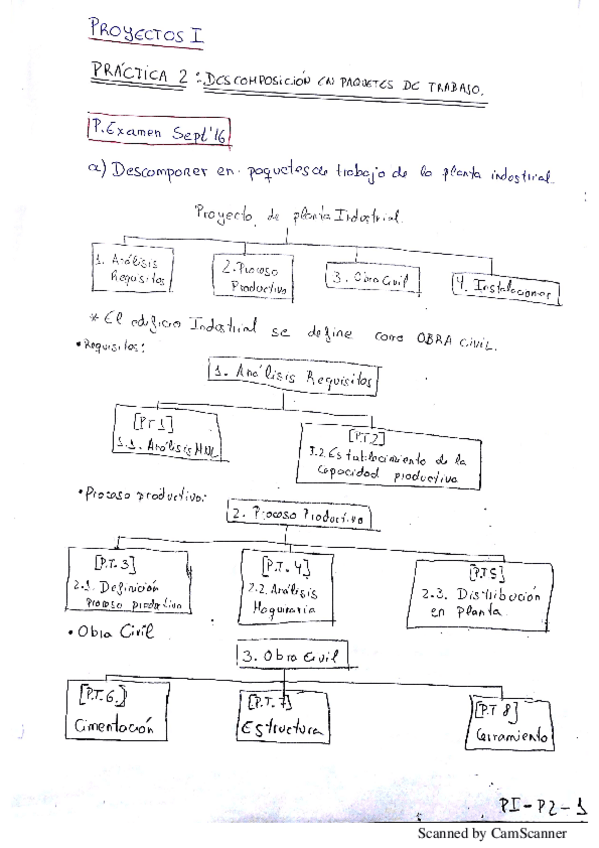 PROYECTOS I
PRÁCTICA 2: DESCOMPOSICIÓN EN PAQUETES DE TRABAJO.
P. Examen Sept'16
a) Descomponer en paquetes de trabajo de la planta industrial
Proyecto de planta Industrial
1. Análisis Requisitos
2. Proceso Productivo
3. Obra Civil
4. Instalaciones
* El edificio Industrial se define como OBRA CIVIL.
• Requisitos:
1. Análisis Requisitos
[PT1]
1.1. Análisis
[P.T.2]
1.2. Establecimiento de la
capacidad productiva
• Proceso productivo:
2. Proceso Productivo
[P.T.3]
2.1. Definición
proceso productivo
[P.T.4]
2.2. Análisis
Maquinaria
[P.T.5]
2.3. Distribución
en planta
• Obra Civil
3. Obra Civil
[P.T.6.]
Cimentación
[P.T.7]
Estructura
[P.T 8]
Cerramiento
PI-P2-1
Scanned by CamScanner